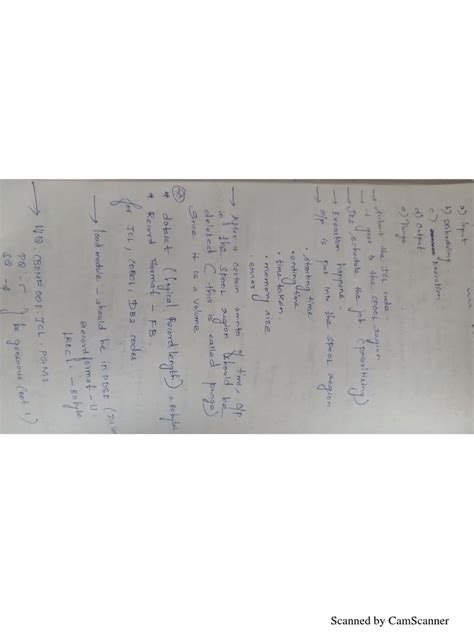 a) Input
b) Scheduling
c) execution
d) Output
e) Purge
→ submit the JCL code
→ is goes to the SPOOL region
→ JES schedule the job (prioritizing)
→ Execution happens
→ o/p is put into the SPOOL region
• starting time
• ending time
• time taken
• memory size
• owner
→ After a certain amnto of time, o/p
in the SPOOL region should be
deleted (this is called purge)
since it is a volume
* dataset (logical Record length) = 80 bytes
* Record Format - FB
for JCL, COBOL, DB2 codes
→ load module - should be in PDSE
record format - U
LRECL - 80 bytes
JCL. PGMS
be generous
Scanned by CamScanner